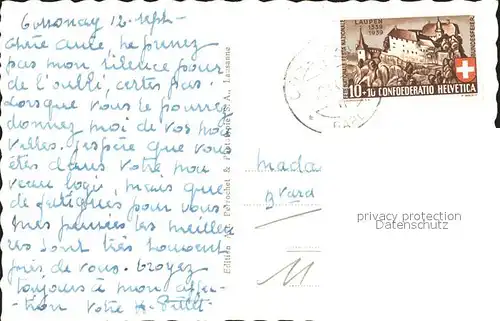 Cossonay 12 sept-
chère amie, ne prenez
pas mon silence pour
de l'oubli, certes pas.
Lorsque vous le pourrez
donnez moi de vos nou
velles. j'espère que vous
êtes dans votre nou
veau logis, mais que
de fatigues pour vous
mes pensées les meilleu
res sont très souvent
près de vous. Croyez
toujours à mon affec-
tion votre
Edition Perrochet & S.A., Lausanne
LAUPEN
1339
1939
10+10 CONFOEDERATIO HELVETICA
Mada
privacy protection
Datenschutz